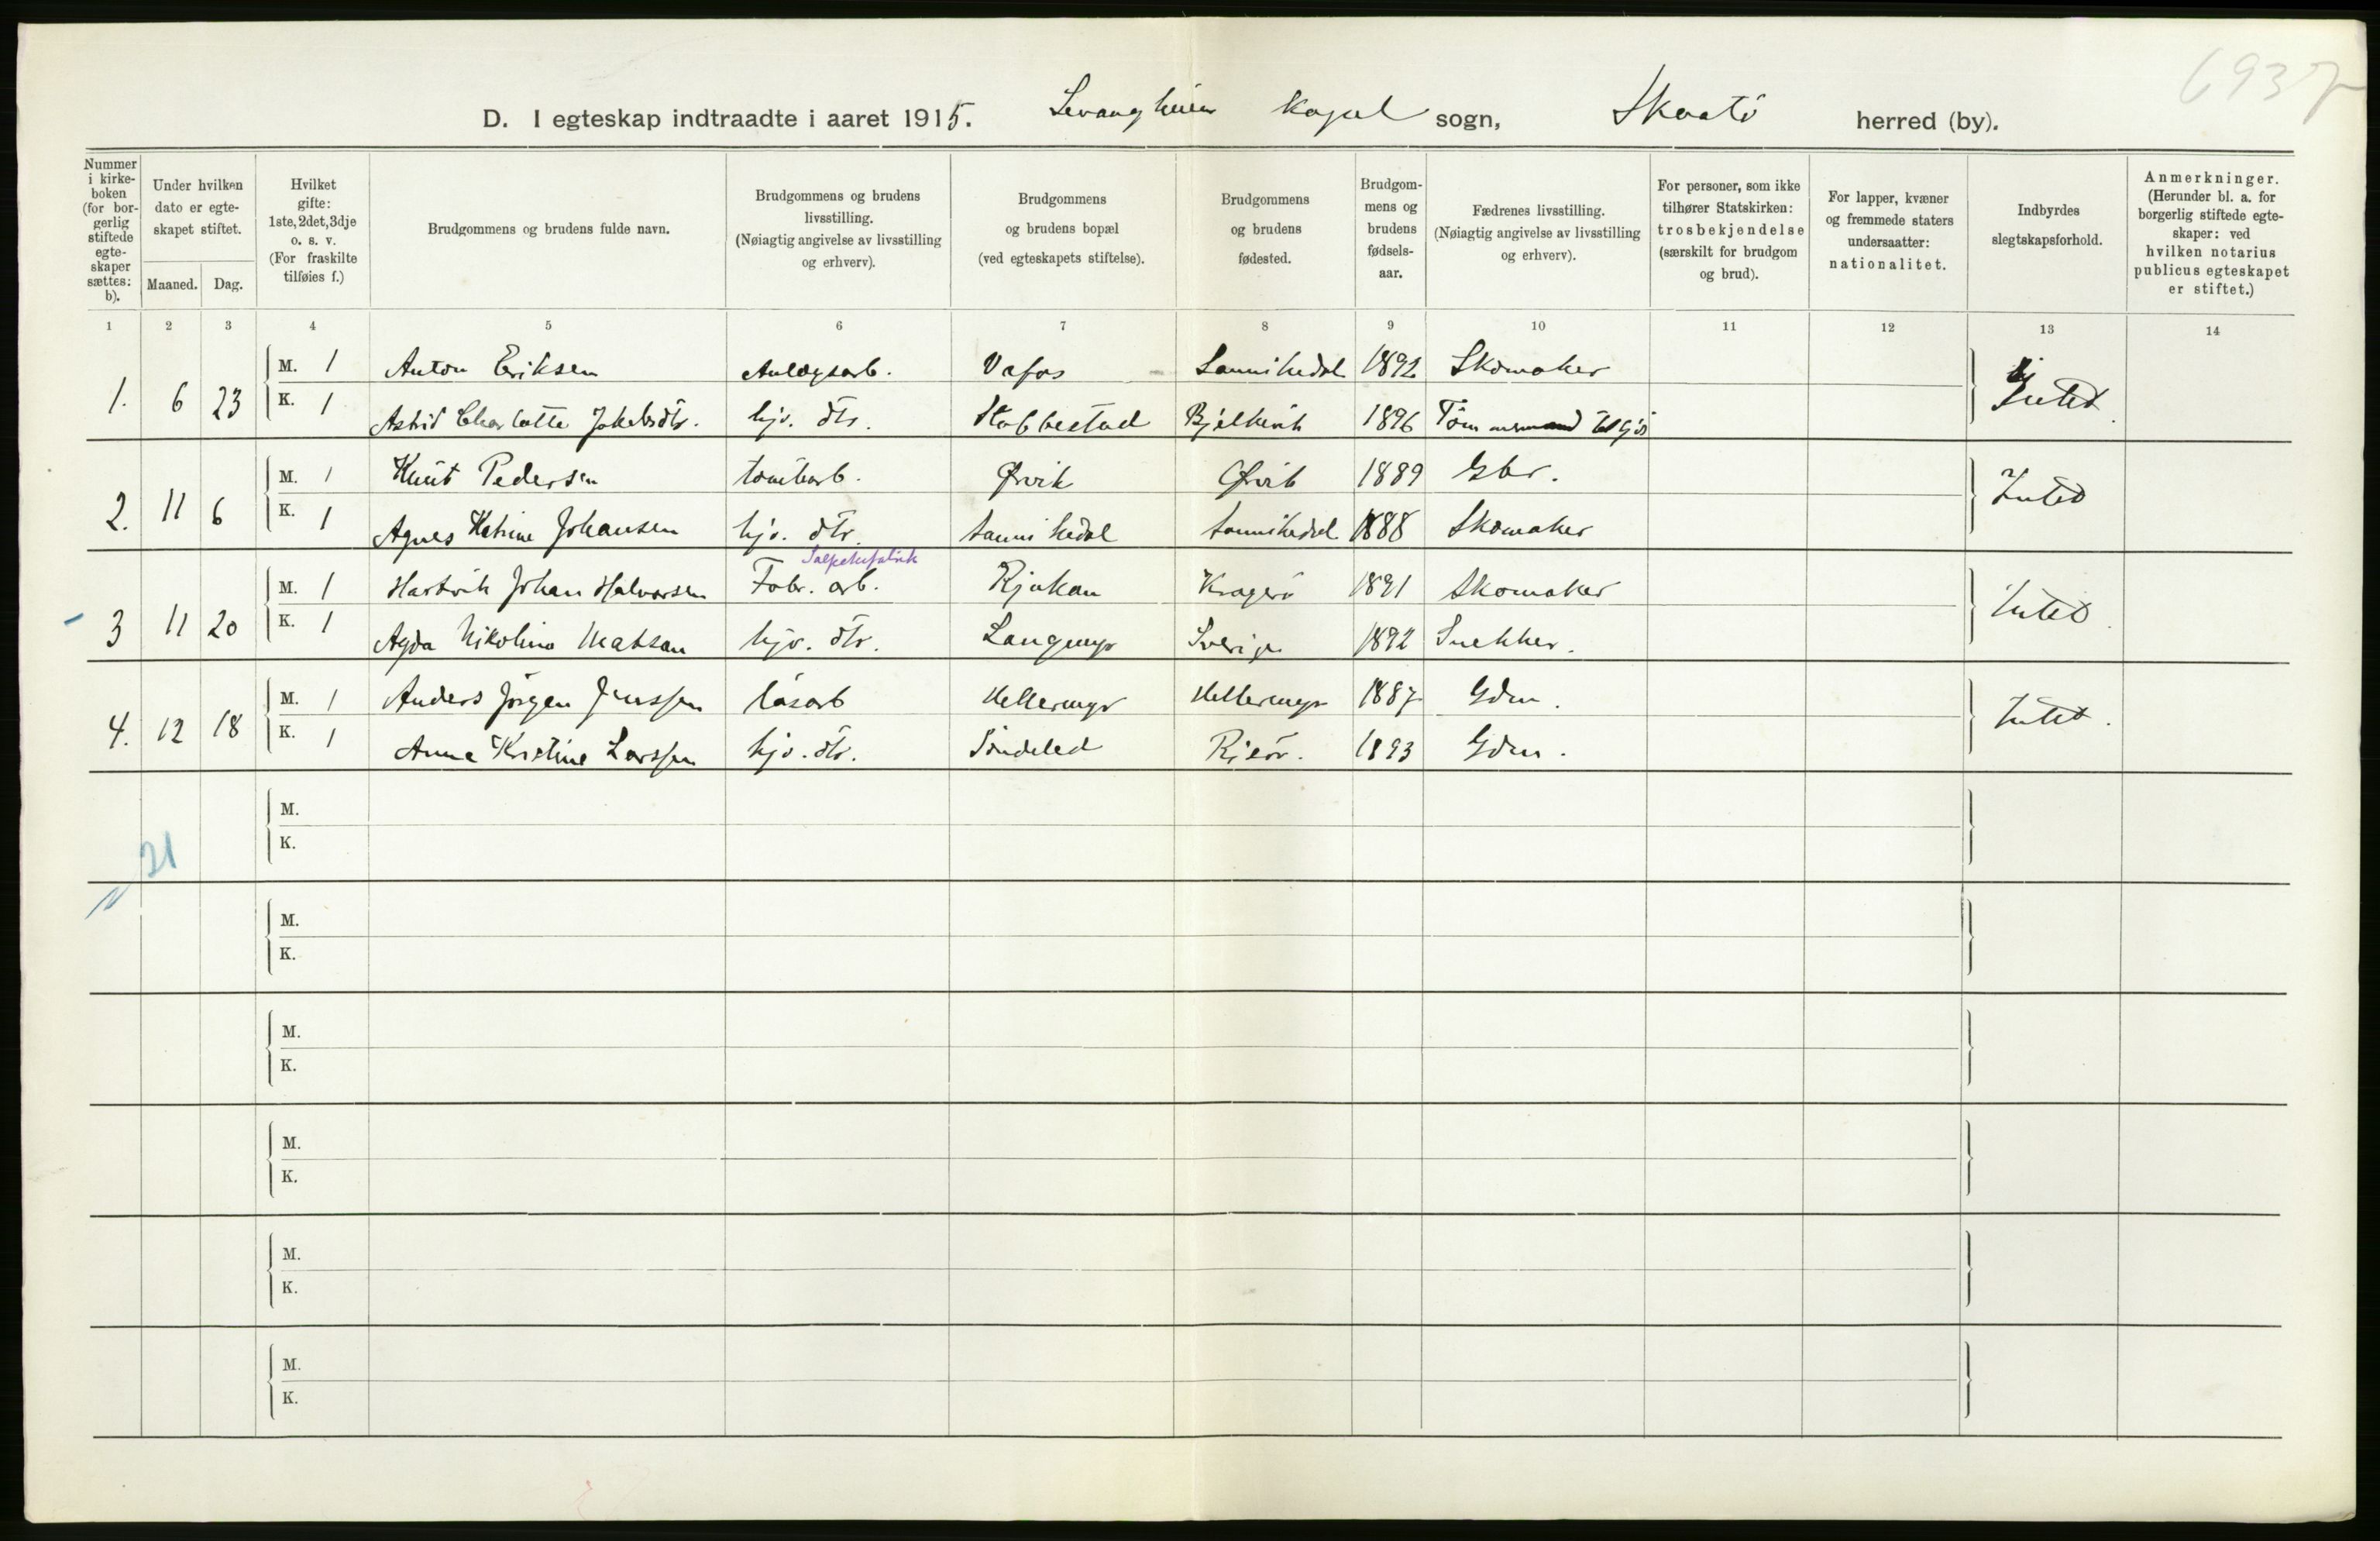 6937
D. I egteskap indtraadte i aaret 1915. Levangheien kapel sogn, Skaatö herred (by).
Nummer i kirke-boken (for bor-gerlig stiftede egte-skaper sættes: b).
Under hvilken dato er egte-skapet stiftet.
Maaned. Dag.
Hvilket gifte: 1ste, 2det, 3dje o. s. v. (For fraskilte tilføies f.)
Brudgommens og brudens fulde navn.
Brudgommens og brudens livsstilling. (Nøiagtig angivelse av livsstilling og erhverv).
Brudgommens og brudens bopæl (ved egteskapets stiftelse).
Brudgommens og brudens fødested.
Brudgom-mens og brudens fødsels-aar.
Fædrenes livsstilling. (Nøiagtig angivelse av livsstilling og erhverv).
For personer, som ikke tilhører Statskirken: trosbekjendelse (særskilt for brudgom og brud).
For lapper, kvæner og fremmede staters undersaatter: nationalitet.
Indbyrdes slegtskapsforhold.
Anmerkninger. (Herunder bl. a. for borgerlig stiftede egte-skaper: ved hvilken notarius publicus egteskapet er stiftet.)
1 2 3 4 5 6 7 8 9 10 11 12 13 14
1. 6 23 M. 1 Anton Eriksen Anlægsarb. Vafos Sannikedal 1892 Skomaker Intet
K. 1 Astrid Charlotte Jakobsdtr. hjv. dtr. Stabbestad Bjelkvik 1896 Tömmermand
2. 11 6 M. 1 Knut Pedersen tomtearb. Ørvik Ørvik 1889 Gbr. Intet
K. 1 Agnes Katrine Johansen hjv. dtr. Sannikedal Sannikedal 1888 Skomaker
Salpeterfabrik
3 11 20 M. 1 Hartvik Johan Halvorsen Fabr. arb. Rjukan Kragerö 1891 Skomaker Intet
K. 1 Agda Nikolina Matsan hjv. dtr. Langmyr Sverige 1892 Snekker.
4. 12 18 M. 1 Anders Jörgen Jenssen lösarb Hellermyr Hellermyr 1887 Gdm. Intet.
K. 1 Anne Kristine Larssen hjv. dtr. Söndeled Risör. 1893 Gdm.
M.
K.
21
M.
K.
M.
K.
M.
K.
M.
K.
M.
K.